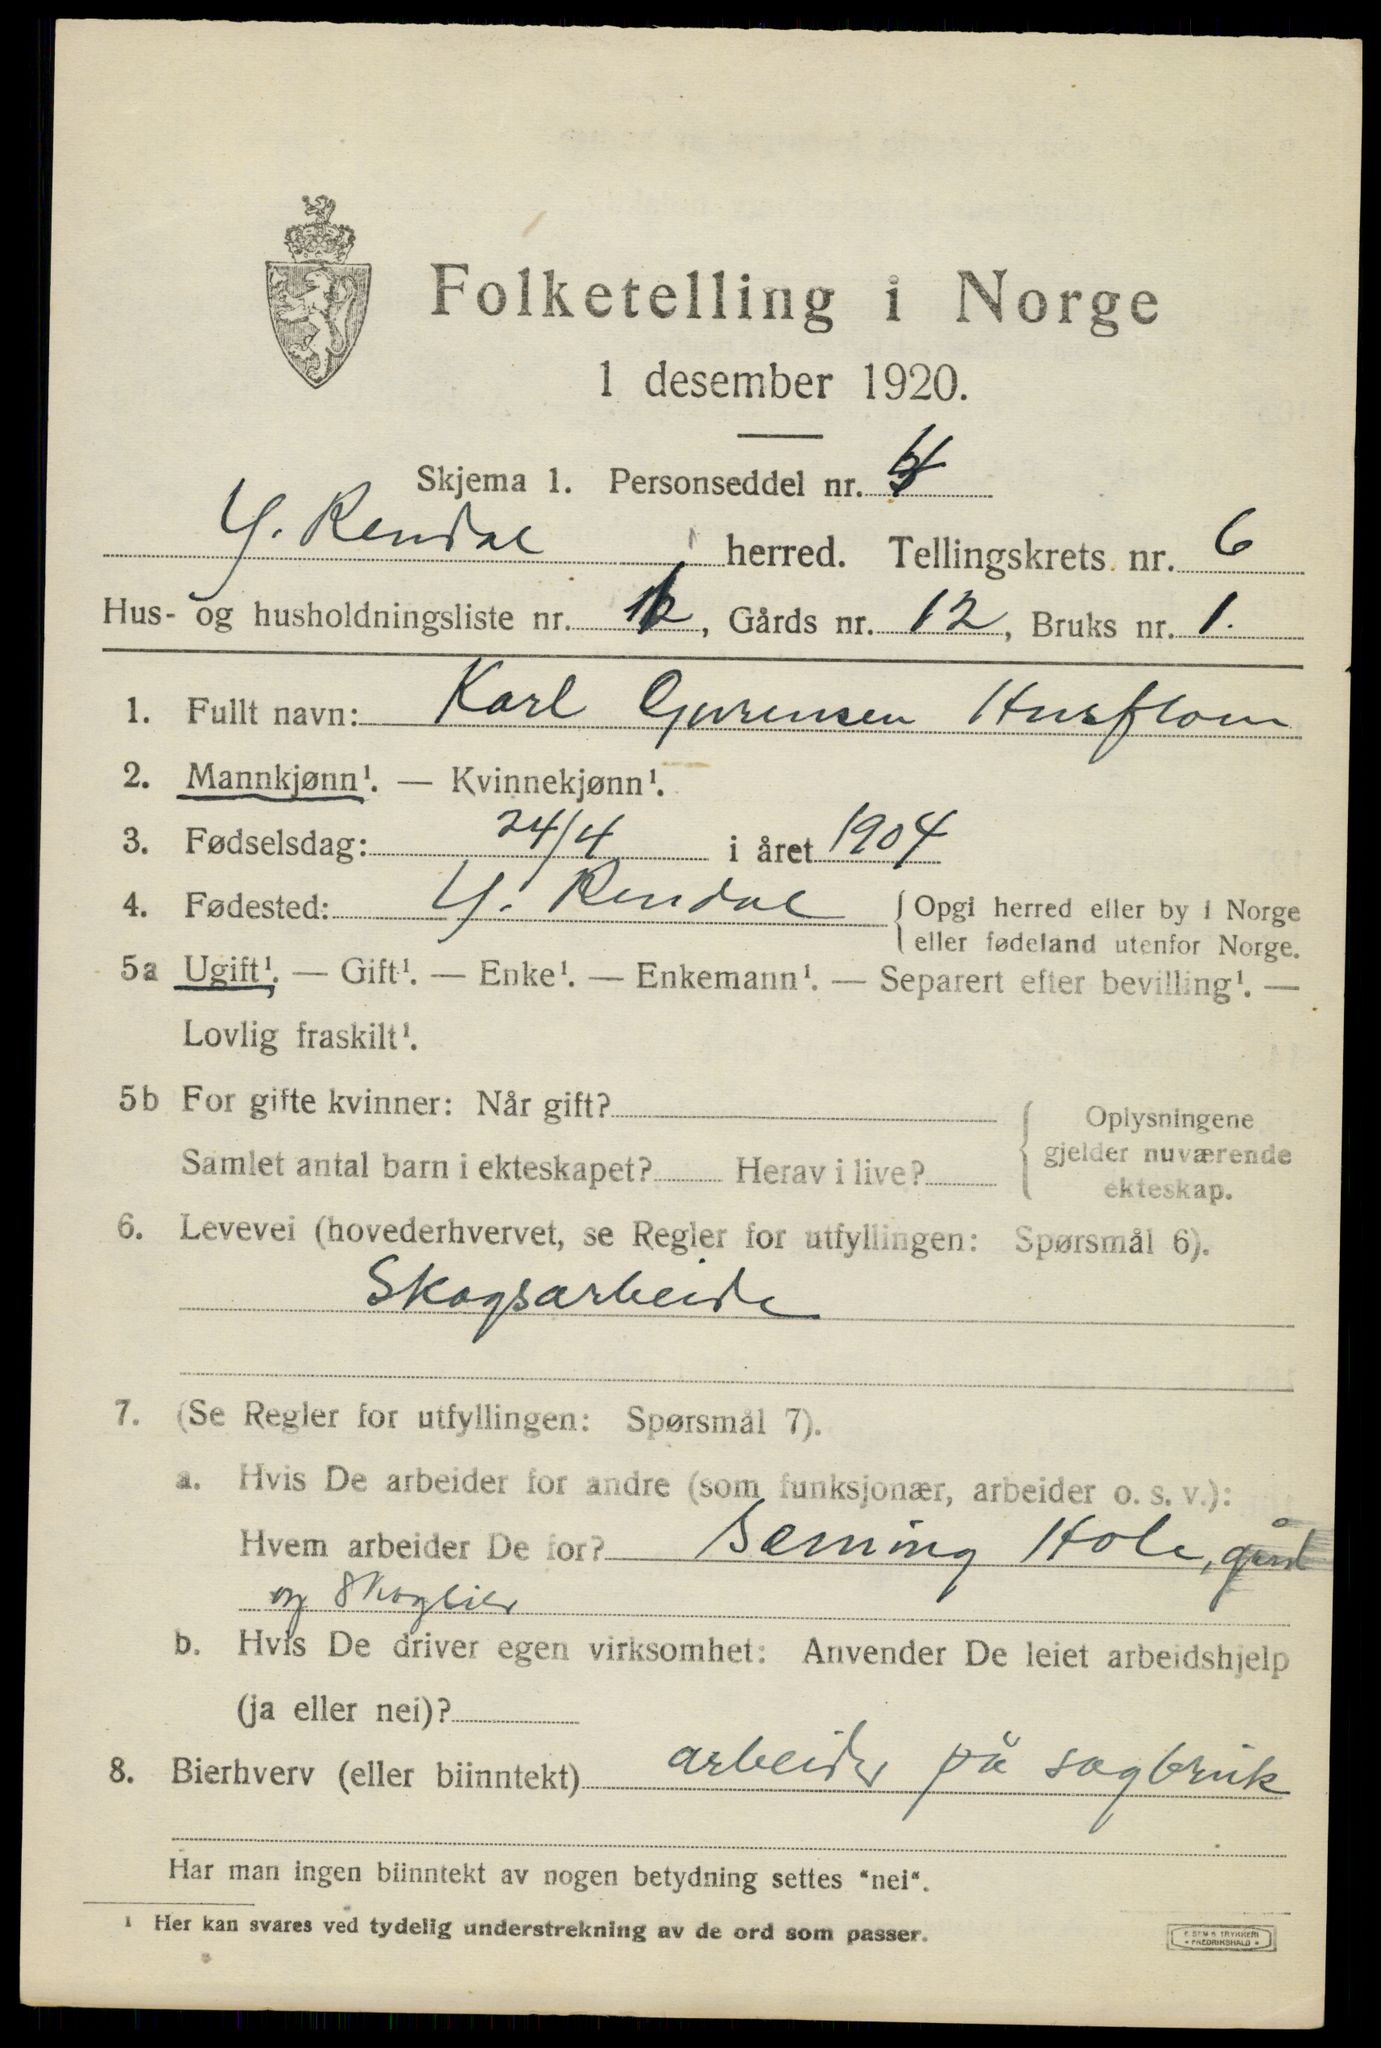 Folketelling i Norge
1 desember 1920.
Skjema 1. Personseddel nr. 4
Y. Rendal herred. Tellingskrets nr. 6
Hus- og husholdningsliste nr. 12, Gårds nr. 12, Bruks nr. 1.
1. Fullt navn: Karl Husfloen
2. Mannkjønn¹. — Kvinnekjønn¹.
3. Fødselsdag: 24/4 i året 1904
4. Fødested: Y. Rendal { Opgi herred eller by i Norge
eller fødeland utenfor Norge.
5a Ugift¹. — Gift¹. — Enke¹. — Enkemann¹. — Separert efter bevilling¹. —
Lovlig fraskilt¹.
5b For gifte kvinner: Når gift? { Oplysningene
gjelder nuværende
Samlet antal barn i ekteskapet? Herav i live?
ekteskap.
6. Levevei (hovederhvervet, se Regler for utfyllingen: Spørsmål 6).
Skogsarbeide
7. (Se Regler for utfyllingen: Spørsmål 7).
a. Hvis De arbeider for andre (som funksjonær, arbeider o. s. v.):
Hvem arbeider De for? Sæming Hole, gård
og Skogeier
b. Hvis De driver egen virksomhet: Anvender De leiet arbeidshjelp
(ja eller nei)?
8. Bierhverv (eller biinntekt) arbeider på sagbruk
Har man ingen biinntekt av nogen betydning settes "nei".
¹ Her kan svares ved tydelig understrekning av de ord som passer.
E. SEM S TRYKKERI
• FREDRIKSHALD •